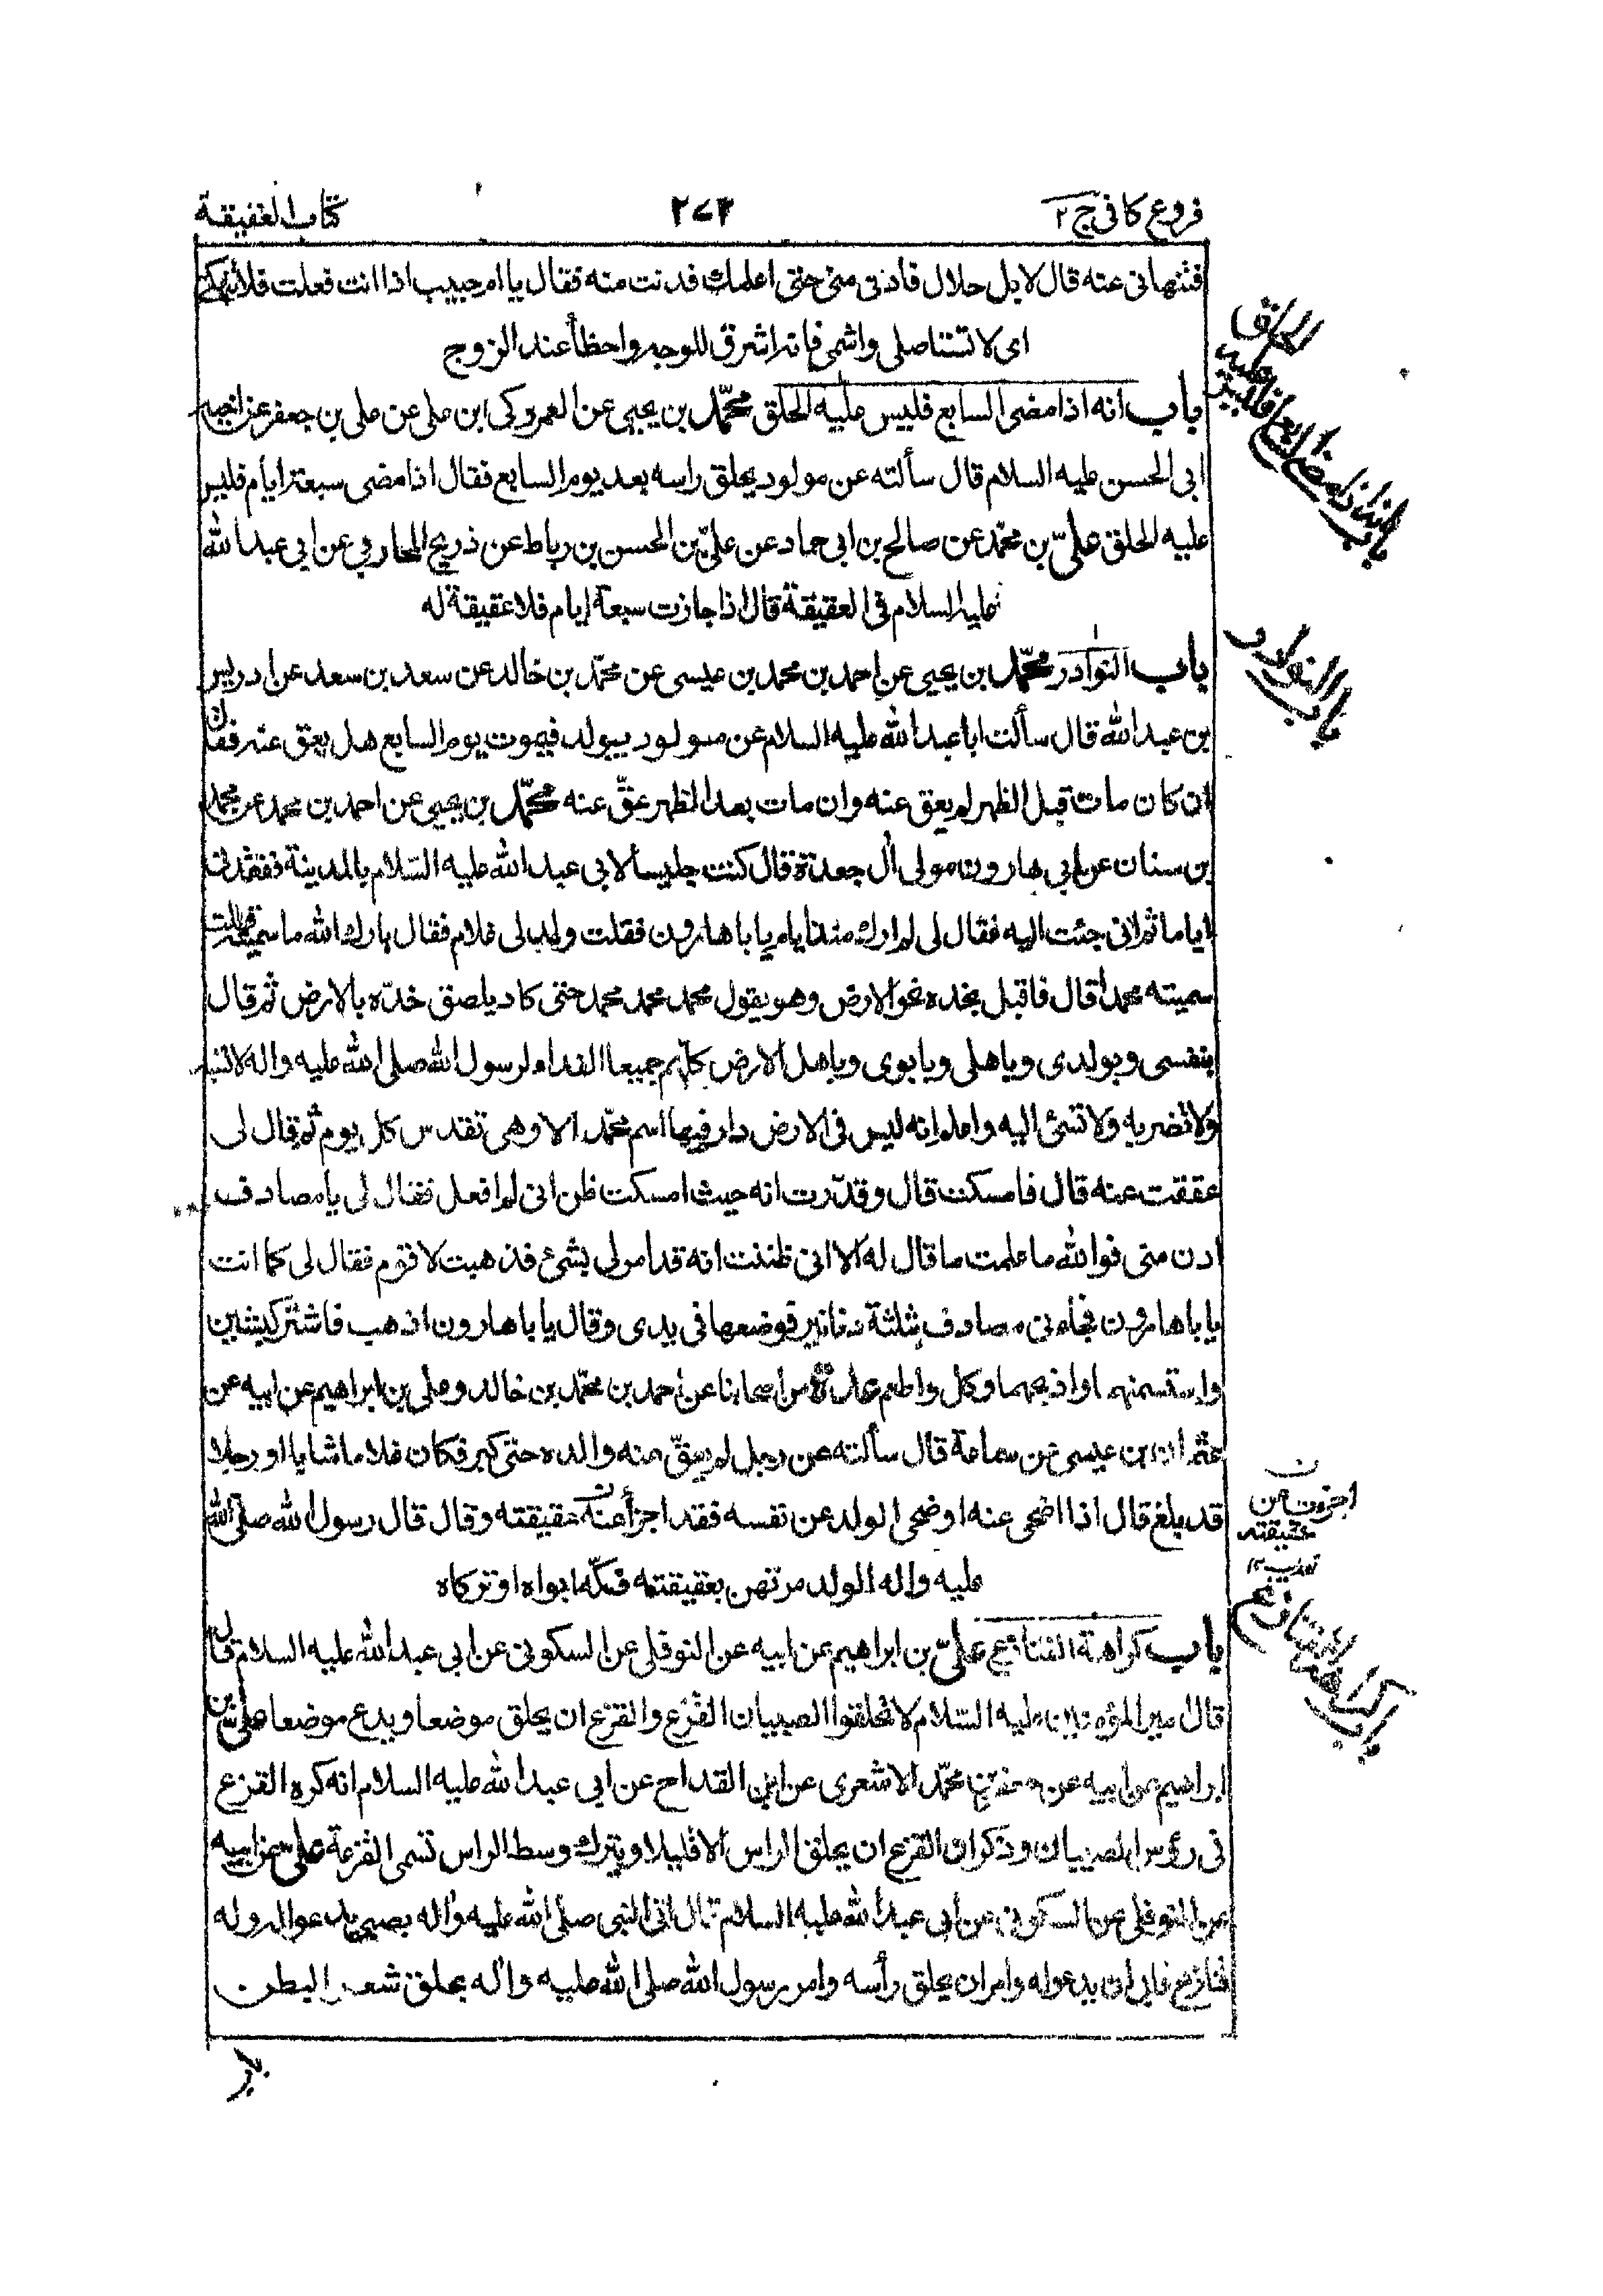 فروع كافى ج ٢
٢٧٣
كتاب العقيقة
فتنهانى عنه قال لا بل حلال فادنى منى حتى اعلمك فدنت منه فقال يا ام حبيب اذا انت فعلت فلا تنهكى
اى لا تستاصلى واشمى فانه اشرق للوجه واحظأ عند الزوج
باب انه اذا مضى السابع فليس عليه الحلق محمّد بن يحيى عن العمركى ابن على عن على بن جعفر عن اخيه
ابى الحسن عليه السلام قال سألته عن مولود يحلق راسه بعد يوم السابع فقال اذا مضى سبعة ايام فليس
عليه الحلق علىّ بن محمّد عن صالح بن ابى حماد عن علىّ بن الحسن بن رباط عن ذريح المحاربى عن ابى عبد الله
عليه السلام فى العقيقة قال اذا جازت سبعة ايام فلا عقيقة له
باب النوادر محمّد بن يحيى عن احمد بن محمد بن عيسى عن محمّد بن خالد عن سعد بن سعد عن ادريس
بن عبد الله قال سألت ابا عبد الله عليه السلام عن مولود يولد فيموت يوم السابع هل يعق عنه فقال
ان كان مات قبل الظهر لم يعق عنه وان مات بعد الظهر عقّ عنه محمّد بن يحيى عن احمد بن محمد عن محمد
بن سنان عن ابى هارون مولى آل جعدة قال كنت جليسا لابى عبد الله عليه السّلام بالمدينة ففقدنى
اياما ثم انى جئت اليه فقال لى لم ارك منذ ايام يا با هارون فقلت ولد لى غلام فقال بارك الله ما سميته قلت
سميته محمدا قال فاقبل بخده نحو الارض وهو يقول محمد محمد محمد حتى كاد يلصق خدّه بالارض ثم قال
بنفسى وبولدى وباهلى وبابوى وباهل الارض كلهم جميعا الفداء لرسول الله صلى الله عليه واله لا تسبه
ولا تضربه ولا تسئ اليه واعلم انه ليس فى الارض دار فيها اسم محمّد الا وهى تقدس كل يوم ثم قال لى
عققت عنه قال فامسكت قال وقدّرت انه حيث امسكت ظن انى لم افعل فقال لى يا مصادف
ادن منى فوالله ما علمت ما قال له الا انى ظننت انه قد امر لى بشئ فذهبت لاقوم فقال لى كما انت
يا با هارون فجاءنى مصادف بثلثة دنانير فوضعها فى يدى وقال يا با هارون اذهب فاشتر كبشين
واستسمنهما واذبحهما وكل واطعم عدّة من اصحابنا عن احمد بن محمّد بن خالد وعلى بن ابراهيم عن ابيه عن
عثمان بن عيسى عن سماعة قال سألته عن رجل لم يعقّ عنه والده حتى كبر فكان غلاما شابا او رجلا
قد بلغ قال اذا اضحى عنه او ضحى الولد عن نفسه فقد اجزأ عنه عقيقته وقال قال رسول الله صلى الله
عليه واله الولد مرتهن بعقيقته فكّه ابواه او تركاه
باب كراهة القنازع علىّ بن ابراهيم عن ابيه عن النوفلى عن السكونى عن ابى عبد الله عليه السلام قال
قال امير المؤمنين عليه السّلام لا تحلقوا الصبيان القزع والقزع ان يحلق موضعا ويدع موضعا على بن
ابراهيم عن ابيه عن جعفر بن محمّد الاشعرى عن ابن القداح عن ابى عبد الله عليه السلام انه كره القزع
فى رؤس الصبيان وذكر ان القزع ان يحلق الراس الا قليلا ويترك وسط الراس تسمى القزعة على عن ابيه
عن النوفلى عن السكونى عن ابى عبد الله عليه السلام قال اتى النبى صلى الله عليه واله بصبى يدعو له وله
قنازع فابى ان يدعو له وامر ان يحلق رأسه وامر رسول الله صلى الله عليه واله بحلق شعر البطن
باب انه اذا مضى السابع فليس عليه الحلق
باب النوادر
ن
اجزءت عن
عقيقته
باب كراهة القنازع